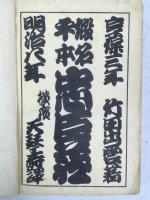 享保三年 竹田出雲稿
假名
手本 忠臣藏
明治八年 横濱